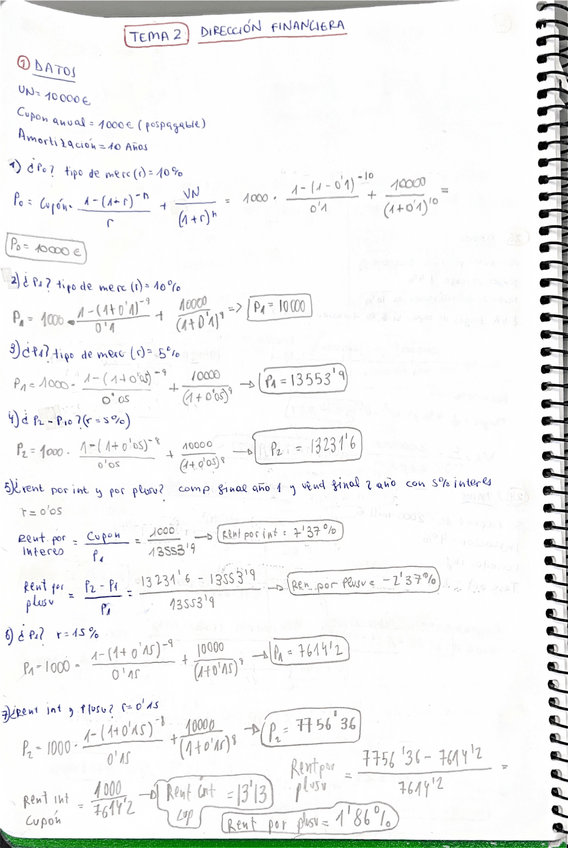 TEMA 2 DIRECCIÓN FINANCIERA
① DATOS
VN = 10000€
Cupon anual = 1000€ (pospagable)
Amortización = 10 Años
1) ¿P₀? tipo de merc (r) = 10%
P₀ = Cupón · (1-(1+r)^-n)/r + VN/(1+r)^n = 1000 · (1-(1-0'1)^-10)/0'1 + 10000/(1+0'1)^10 =
P₀ = 10000€
2) ¿P₁? tipo de merc (r) = 10%
P₁ = 1000 · (1-(1+0'1)^-9)/0'1 + 10000/(1+0'1)^9 => P₁ = 10000
3) ¿P₁? tipo de merc (r) = 5%
P₁ = 1000 · (1-(1+0'05)^-9)/0'05 + 10000/(1+0'05)^9 → P₁ = 13553'9
4) ¿P₂ - P₁₀? (r = 5%)
P₂ = 1000 · (1-(1+0'05)^-8)/0'05 + 10000/(1+0'05)^8 → P₂ = 13231'6
5) ¿rent por int y por plusv? comp final año 1 y vend final 2 año con 5% interes
r = 0'05
Rent por interes = Cupon/P₁ = 1000/13553'9 → Rent por int = 7'37%
Rent por plusv = (P₂ - P₁)/P₁ = (13231'6 - 13553'9)/13553'9 → Ren. por plusv = -2'37%
6) ¿P₁? r = 15%
P₁ = 1000 · (1-(1+0'15)^-9)/0'15 + 10000/(1+0'15)^9 → P₁ = 7614'2
7) ¿Rent int y plusv? r = 0'15
P₂ = 1000 · (1-(1+0'15)^-8)/0'15 + 10000/(1+0'15)^8 → P₂ = 7756'36
Rent int cupón = 1000/7614'2 → Rent int cup = 13'13
Rent por plusv = (7756'36 - 7614'2)/7614'2 =
Rent por plusv = 1'86%